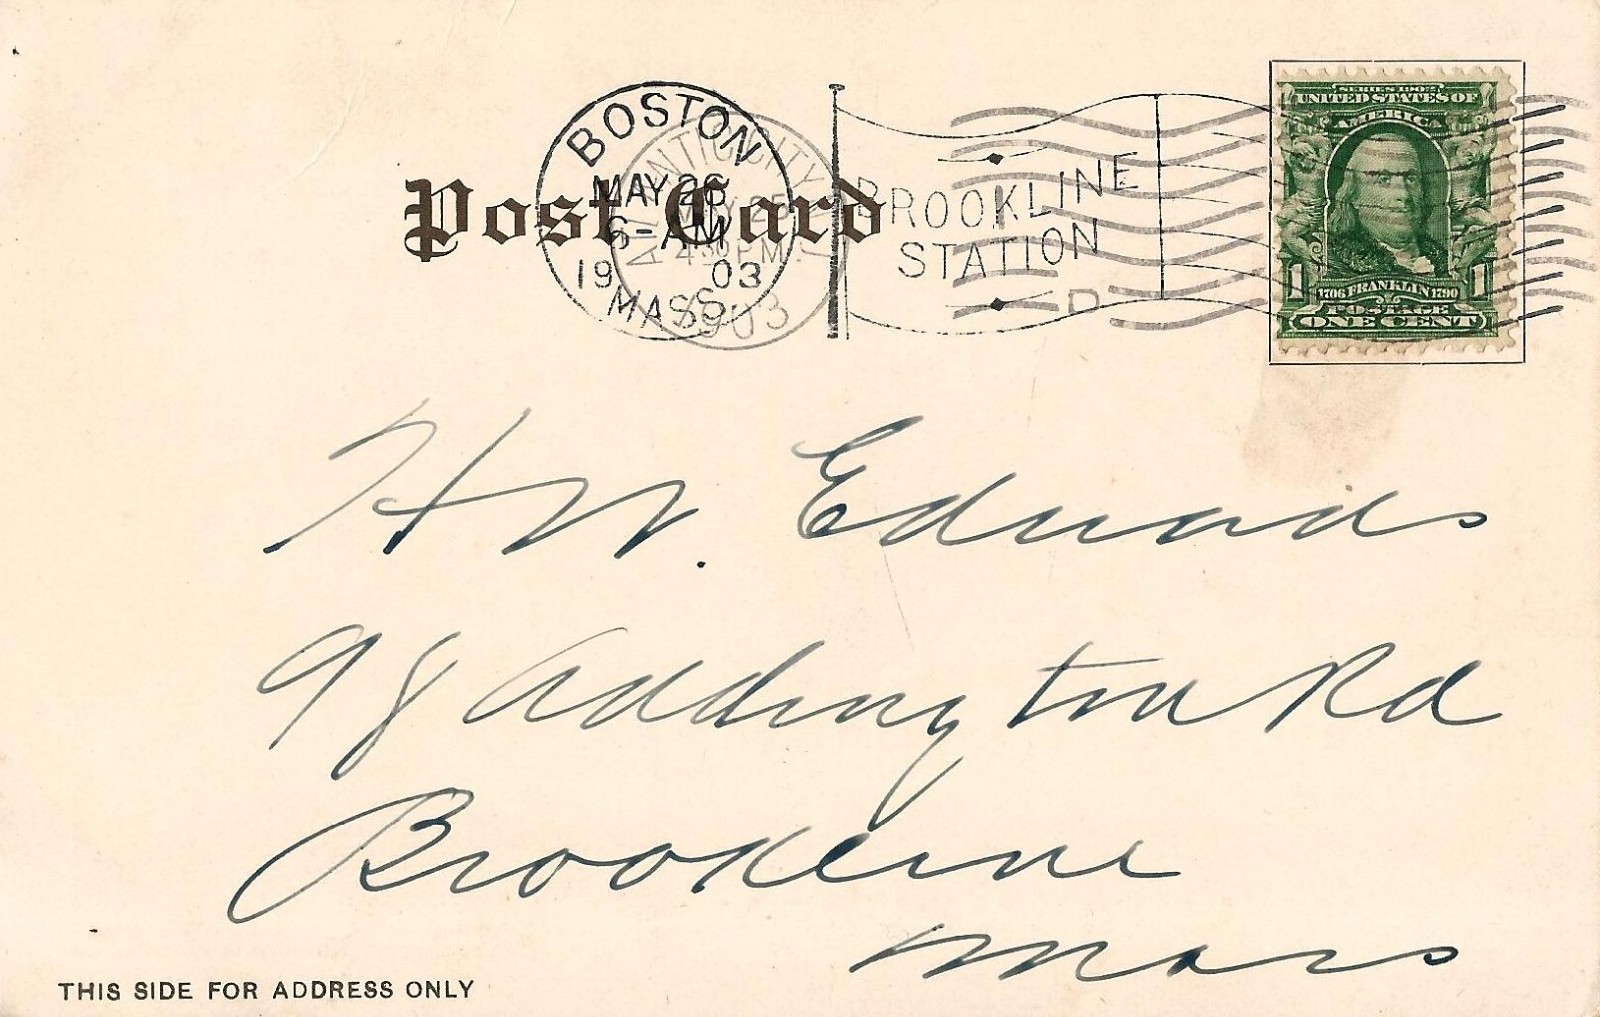 Post Card
BOSTON
MAY 26
6- AM
19 03
MASS.
ATLANTIC CITY
MAY 25
430 PM
1903
BROOKLINE
STATION
D
SERIES 1902
UNITED STATES OF
AMERICA
1 1
1706 FRANKLIN 1790
POSTAGE
ONE CENT
H W. Edwards
98 Addington Rd
Brookline
Mass
THIS SIDE FOR ADDRESS ONLY